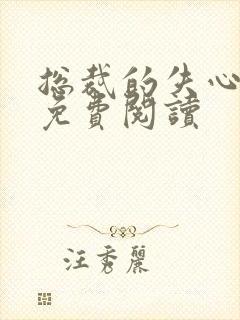 总裁的失心
免費閱讀
汪秀麗